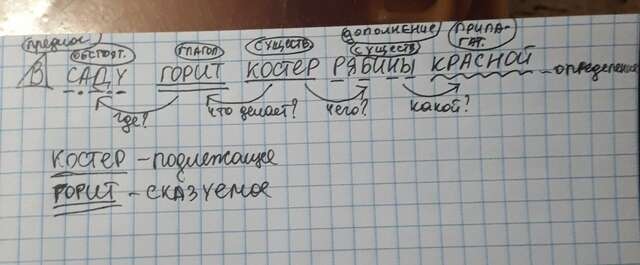 ПРЕДЛОГ ОБСТОЯТ. ГЛАГОЛ СУЩЕСТВ ДОПОЛНЕНИЕ СУЩЕСТВ ПРИЛАГАТ.
В САДУ ГОРИТ КОСТЕР РЯБИНЫ КРАСНОЙ - определение
где? что делает? чего? какой?
КОСТЕР - подлежащее
ГОРИТ - СКАЗУЕМОЕ